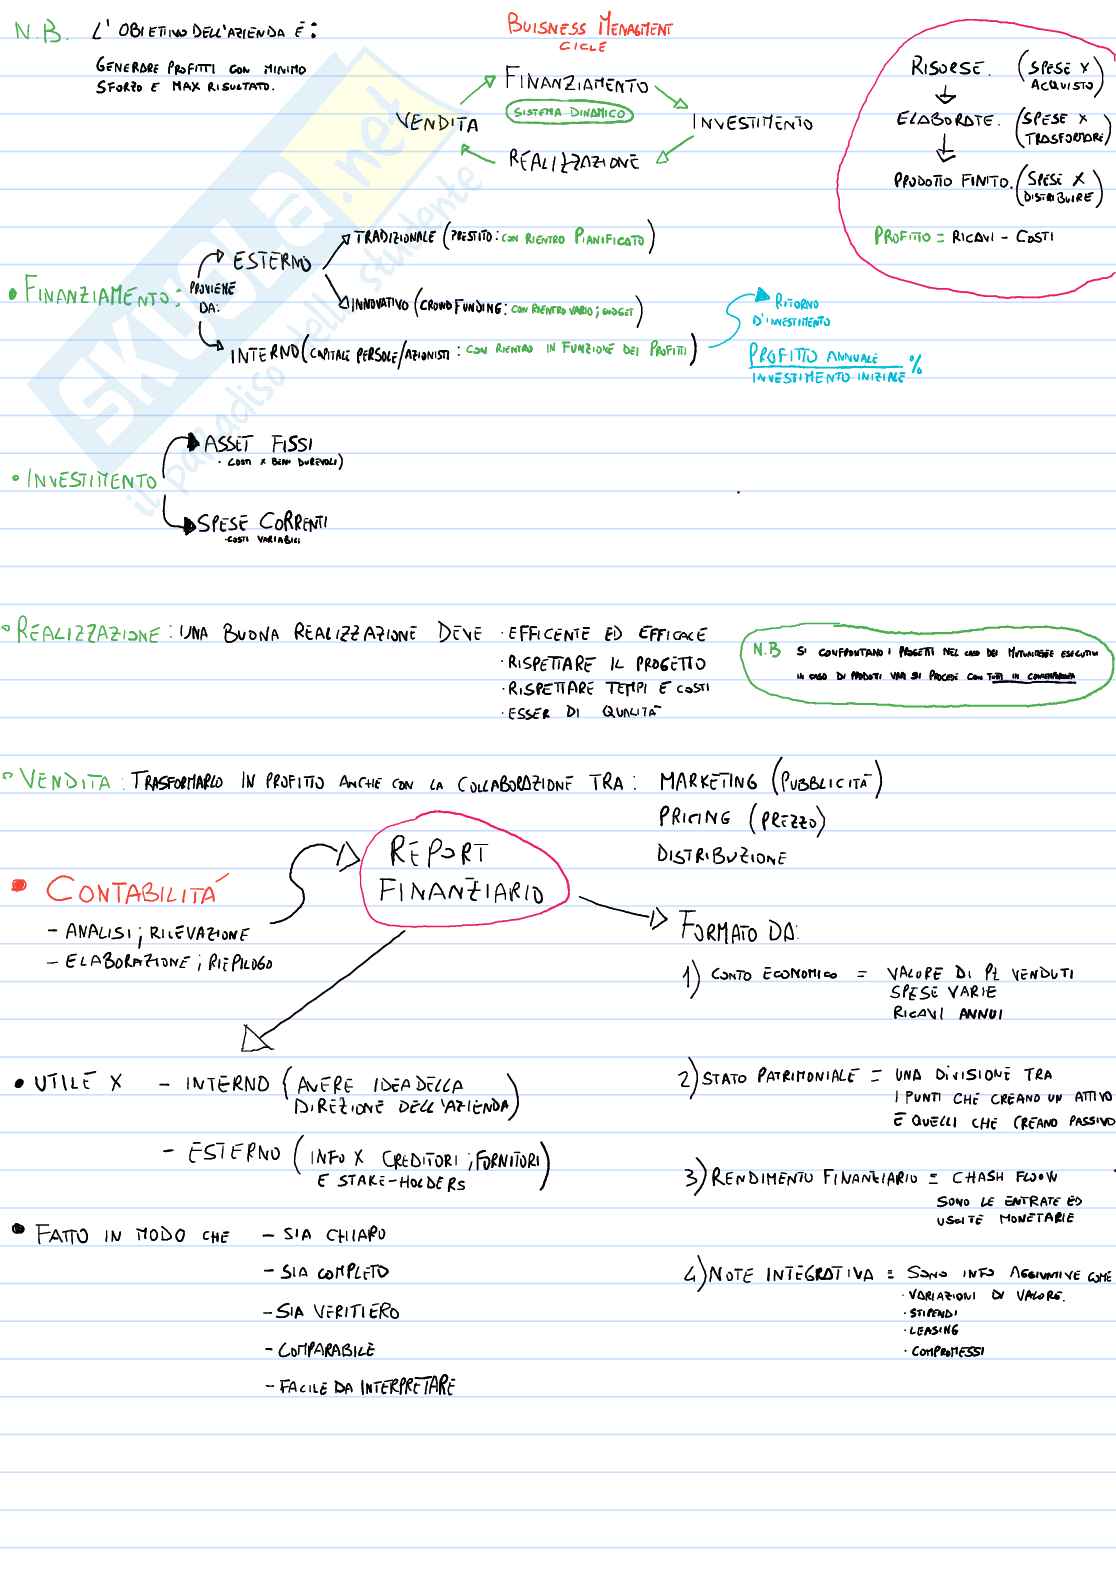 N.B. L'OBIETIVO DELL'AZIENDA È:
GENERARE PROFITTI CON MINIMO
SFORZO E MAX RISULTATO.
BUISNESS MENAGMENT
CICLE
FINANZIAMENTO
SISTEMA DINAMICO
VENDITA
INVESTIMENTO
REALIZZAZIONE
RISORSE. (SPESE X
ACQUISTO)
ELABORATE. (SPESE X
TRASFORMARE)
PRODOTTO FINITO. (SPESE X
DISTRIBUIRE)
PROFITTO = RICAVI - COSTI
• FINANZIAMENTO: PROVIENE
DA:
ESTERNO
TRADIZIONALE (PRESTITO: CON RIENTRO PIANIFICATO)
INNOVATIVO (CROWDFUNDING: CON RIENTRO VARIO; GADGET)
INTERNO (CAPITALE PERSOLE/AZIONISTI: CON RIENTRO IN FUNZIONE DEI PROFITTI)
RITORNO
D'INVESTIMENTO
PROFITTO ANNUALE
INVESTIMENTO INIZIALE %
• INVESTIMENTO
ASSET FISSI
· COSTI X BENI DUREVOLI)
SPESE CORRENTI
· COSTI VARIABILI
• REALIZZAZIONE: UNA BUONA REALIZZAZIONE DEVE · EFFICENTE ED EFFICACE
· RISPETTARE IL PROGETTO
· RISPETTARE TEMPI E COSTI
· ESSER DI QUALITÀ
N.B SI CONFRONTANO I PROGETTI NEL CASO DEI MUTUAMENTE ESECUTIVI
IN CASO DI PRODOTTI VARI SI PROCEDE CON TUTTI IN CONTEMPORANEA
• VENDITA: TRASFORMARLO IN PROFITTO ANCHE CON LA COLLABORAZIONE TRA: MARKETING (PUBBLICITÀ)
PRICING (PREZZO)
DISTRIBUZIONE
REPORT
FINANZIARIO
• CONTABILITÀ
- ANALISI; RILEVAZIONE
- ELABORAZIONE; RIEPILOGO
FORMATO DA:
1) CONTO ECONOMICO = VALORE DI PZ VENDUTI
SPESE VARIE
RICAVI ANNUI
2) STATO PATRIMONIALE = UNA DIVISIONE TRA
I PUNTI CHE CREANO UN ATTIVO
E QUELLI CHE CREANO PASSIVO
3) RENDIMENTO FINANZIARIO = CHASH FLOW
SONO LE ENTRATE ED
USCITE MONETARIE
4) NOTE INTEGRATIVA = SONO INFO AGGIUNTIVE COME
· VARIAZIONI DI VALORE.
· STIPENDI
· LEASING
· COMPROMESSI
• UTILE X - INTERNO (AVERE IDEA DELLA
DIREZIONE DELL'AZIENDA)
- ESTERNO (INFO X CREDITORI; FORNITORI
E STAKE-HOLDERS)
• FATTO IN MODO CHE - SIA CHIARO
- SIA COMPLETO
- SIA VERITIERO
- COMPARABILE
- FACILE DA INTERPRETARE
SKUOLA.net
il paradiso dello studente